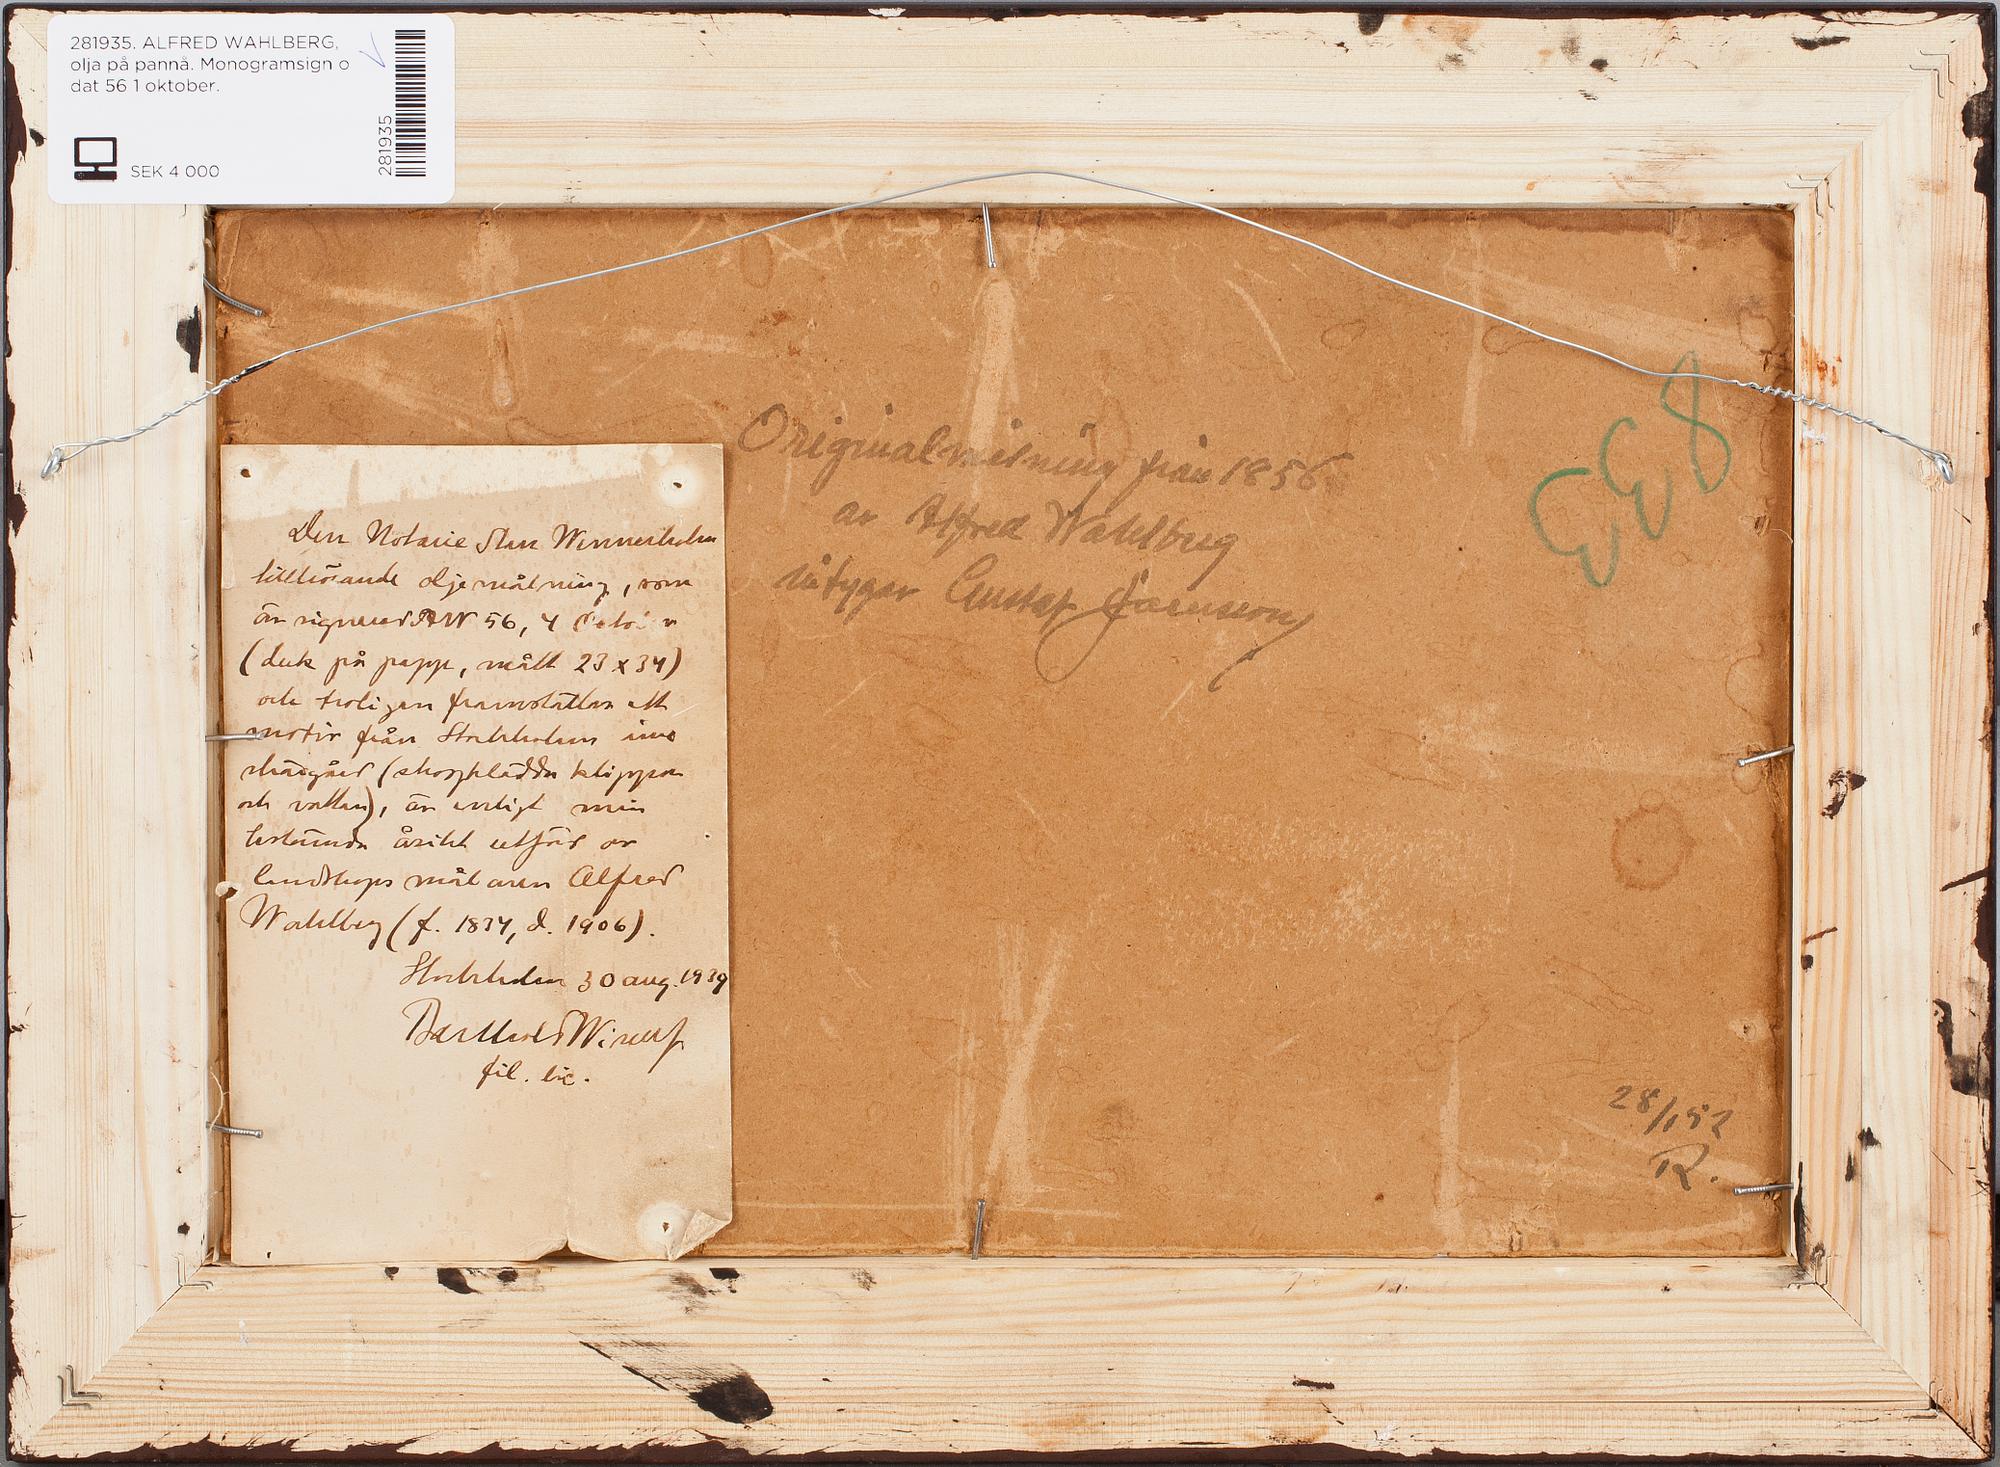 281935. ALFRED WAHLBERG,
olja på pannå. Monogramsign o
dat 56 1 oktober.
SEK 4 000
281935
Originalmålning från 1856
av Alfred Wahlberg
intygar Gustaf
833
Den Notarie Sten Wennerholm
tillhörande oljemålning, som
är signerad AW 56, 4
(duk på papp, mått 23 x 34)
och troligen framställer ett
motiv från Stockholms inre
skärgård (skogklädda klippor
och vatten), är enligt min
bestämda åsikt utförd av
landskapsmålaren Alfred
Wahlberg (f. 1834, d. 1906).
Stockholm 30 aug. 1939
fil. lic.
28/152
R.